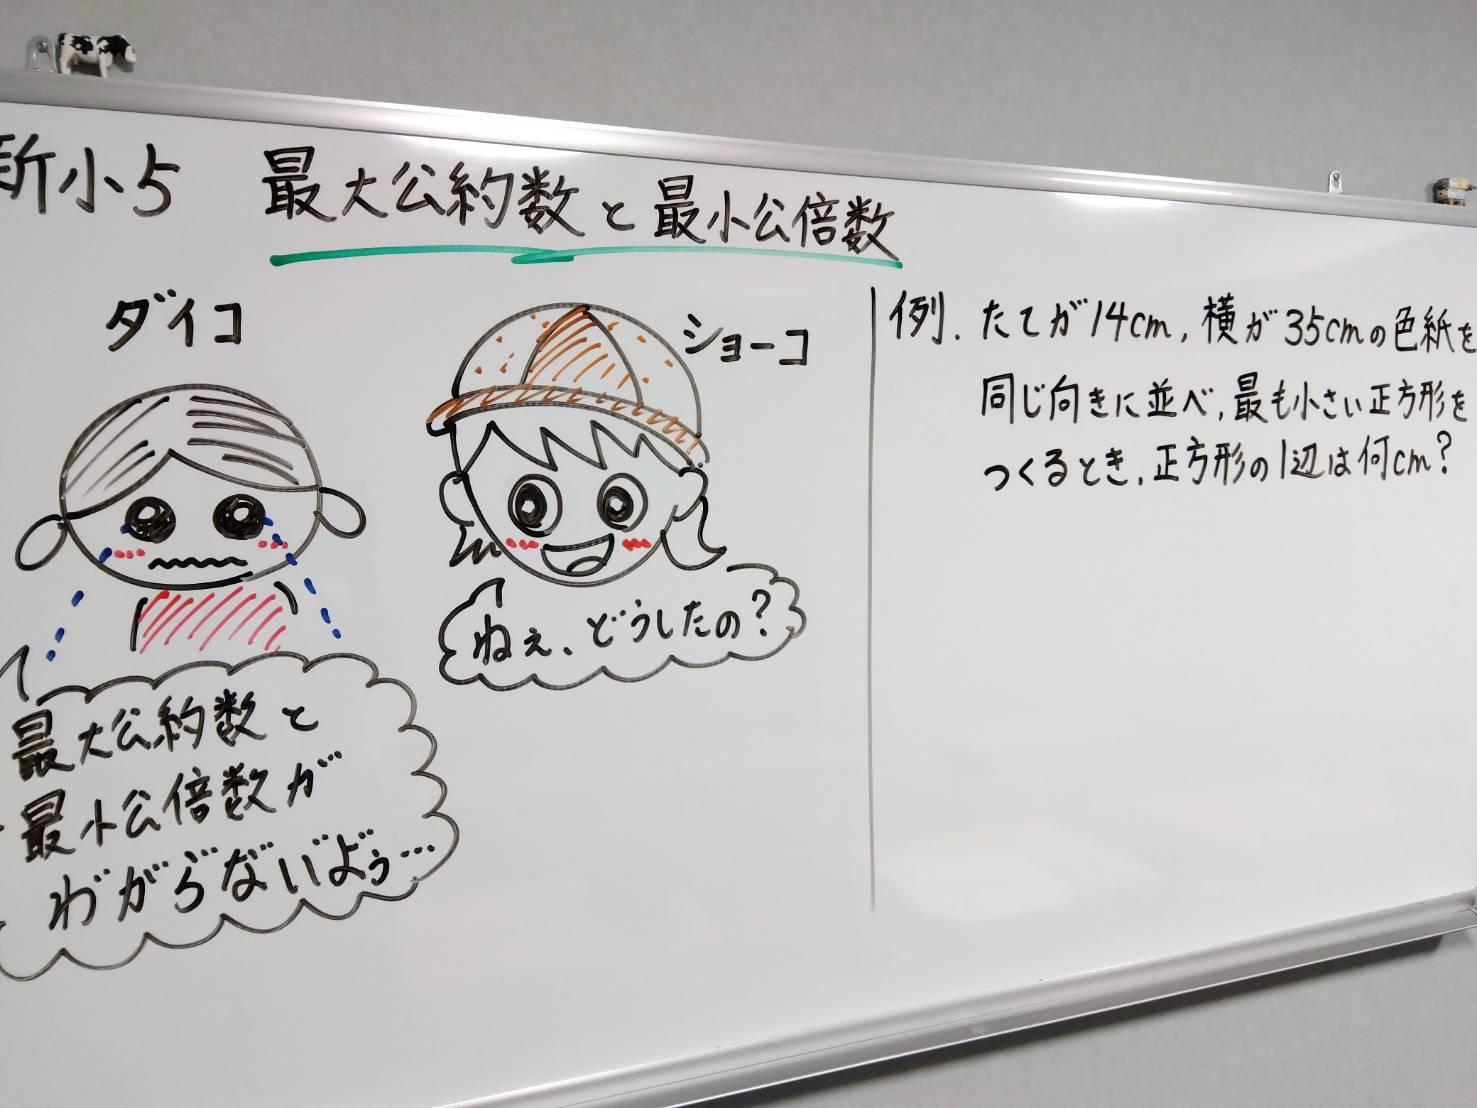 新小5 最大公約数と最小公倍数
ダイコ
ショーコ
ねぇ、どうしたの?
最大公約数と
最小公倍数が
わ゛がら゛な゛い゛よ゛ぅ…
例. たてが14cm, 横が35cmの色紙を
同じ向きに並べ, 最も小さい正方形を
つくるとき, 正方形の1辺は何cm?